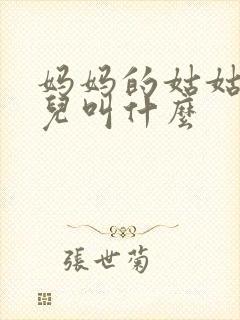 妈妈的姑姑
兒叫什麼
張世菊